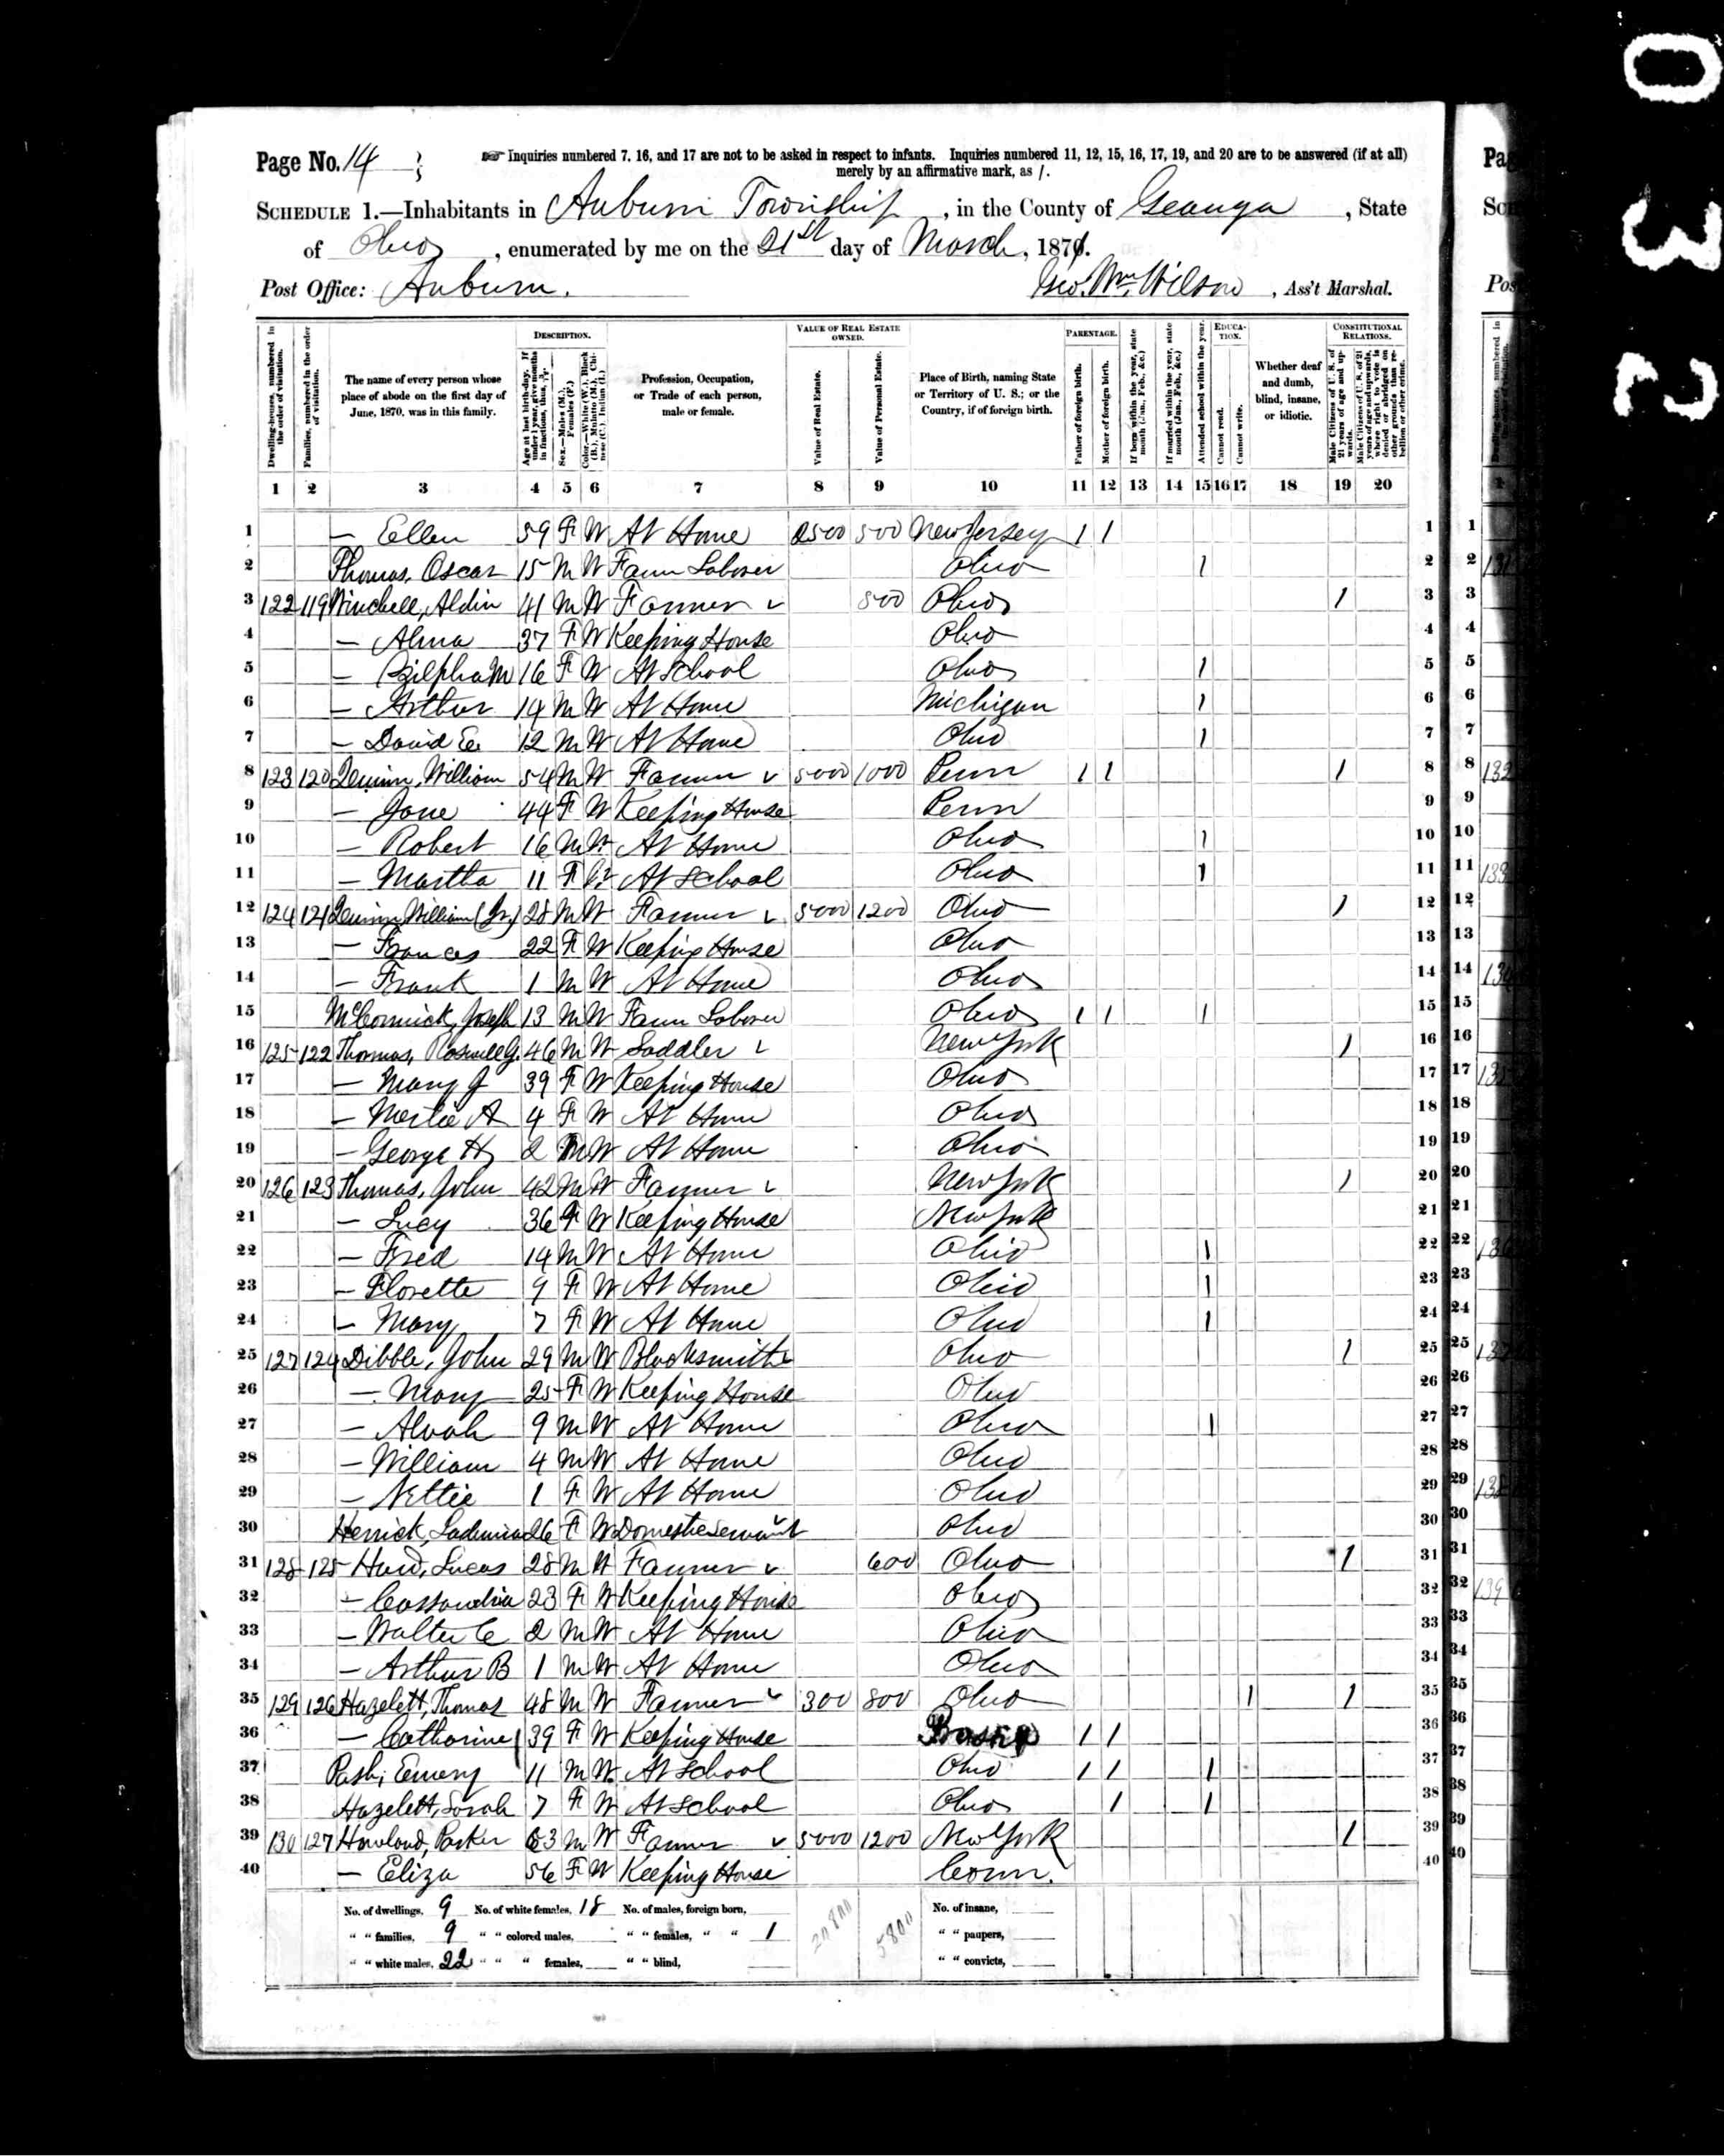 Page No. 14
☞ Inquiries numbered 7, 16, and 17 are not to be asked in respect to infants. Inquiries numbered 11, 12, 15, 16, 17, 19, and 20 are to be answered (if at all)
merely by an affirmative mark, as /.
SCHEDULE 1.—Inhabitants in Auburn Township, in the County of Geauga, State
of Ohio, enumerated by me on the 21st day of March, 1871.
Post Office: Auburn. Geo. Wm. Wilson, Ass't Marshal.
Dwelling-houses, numbered in the order of visitation.
Families, numbered in the order of visitation.
The name of every person whose place of abode on the first day of June, 1870, was in this family.
DESCRIPTION.
Age at last birth-day. If under 1 year, give months in fractions, thus, 3/12.
Sex.—Males (M.), Females (F.)
Color.—White (W.), Black (B.), Mulatto (M.), Chinese (C.), Indian (I.)
Profession, Occupation, or Trade of each person, male or female.
VALUE OF REAL ESTATE OWNED.
Value of Real Estate.
Value of Personal Estate.
Place of Birth, naming State or Territory of U. S.; or the Country, if of foreign birth.
PARENTAGE.
Father of foreign birth.
Mother of foreign birth.
If born within the year, state month (Jan., Feb., &c.)
If married within the year, state month (Jan., Feb., &c.)
EDUCATION.
Attended school within the year.
Cannot read.
Cannot write.
Whether deaf and dumb, blind, insane, or idiotic.
CONSTITUTIONAL RELATIONS.
Male Citizens of U. S. of 21 years of age and upwards.
Male Citizens of U. S. of 21 years of age and upwards, whose right to vote is denied or abridged on other grounds than rebellion or other crime.
1 2 3 4 5 6 7 8 9 10 11 12 13 14 15 16 17 18 19 20
1 — Ellen 59 F W At Home 2500 500 New Jersey / / 1
2 Thomas, Oscar 15 M W Farm Laborer Ohio / 2
3 122 119 Winchell, Aldin 41 M W Farmer 500 Ohio / 3
4 — Alma 37 F W Keeping House Ohio 4
5 — Zilpha M 16 F W At School Ohio / 5
6 — Arthur 14 M W At Home Michigan / 6
7 — David E. 12 M W At Home Ohio / 7
8 123 120 William 54 M W Farmer 5000 1000 Penn / / / 8
9 — Jane 44 F W Keeping House Penn 9
10 — Robert 16 M W At Home Ohio / 10
11 — Martha 11 F W At School Ohio / 11
12 124 121 William (Jr.) 28 M W Farmer 5000 1200 Ohio / 12
13 — Frances 22 F W Keeping House Ohio 13
14 — Frank 1 M W At Home Ohio 14
15 McCormick, Joseph 13 M W Farm Laborer Ohio / / / 15
16 125 122 Thomas, Roswell G. 46 M W Saddler New York / 16
17 — Mary J 39 F W Keeping House Ohio 17
18 — Mertie A 4 F W At Home Ohio 18
19 — George H 2 M W At Home Ohio 19
20 126 123 Thomas, John 42 M W Farmer New York / 20
21 — Lucy 36 F W Keeping House New York 21
22 — Fred 14 M W At Home Ohio / 22
23 — Florette 9 F W At Home Ohio / 23
24 — Mary 7 F W At Home Ohio / 24
25 127 124 Dibble, John 29 M W Blacksmith Ohio / 25
26 — Mary 25 F W Keeping House Ohio 26
27 — Alvah 9 M W At Home Ohio / 27
28 — William 4 M W At Home Ohio 28
29 — Nettie 1 F W At Home Ohio 29
30 Herrick, 26 F W Domestic Servant Ohio 30
31 128 125 Hurd, Lucas 28 M W Farmer 600 Ohio / 31
32 — Cassandria 23 F W Keeping House Ohio 32
33 — Walter C 2 M W At Home Ohio 33
34 — Arthur B 1 M W At Home Ohio 34
35 129 126 Hazelett, Thomas 48 M W Farmer 300 800 Ohio / / 35
36 — Catharine 39 F W Keeping House / / 36
37 Emery 11 M W At School Ohio / / / 37
38 Hazelett, Sarah 7 F W At School Ohio / / 38
39 130 127 Howland, Parker 63 M W Farmer 5000 1200 New York / 39
40 — Eliza 56 F W Keeping House Conn. 40
No. of dwellings, 9 No. of white females, 18 No. of males, foreign born, No. of insane,
" " families, 9 " " colored males, " " females, " " 1 " " paupers,
" " white males, 22 " " " females, " " blind, " " convicts,
5800